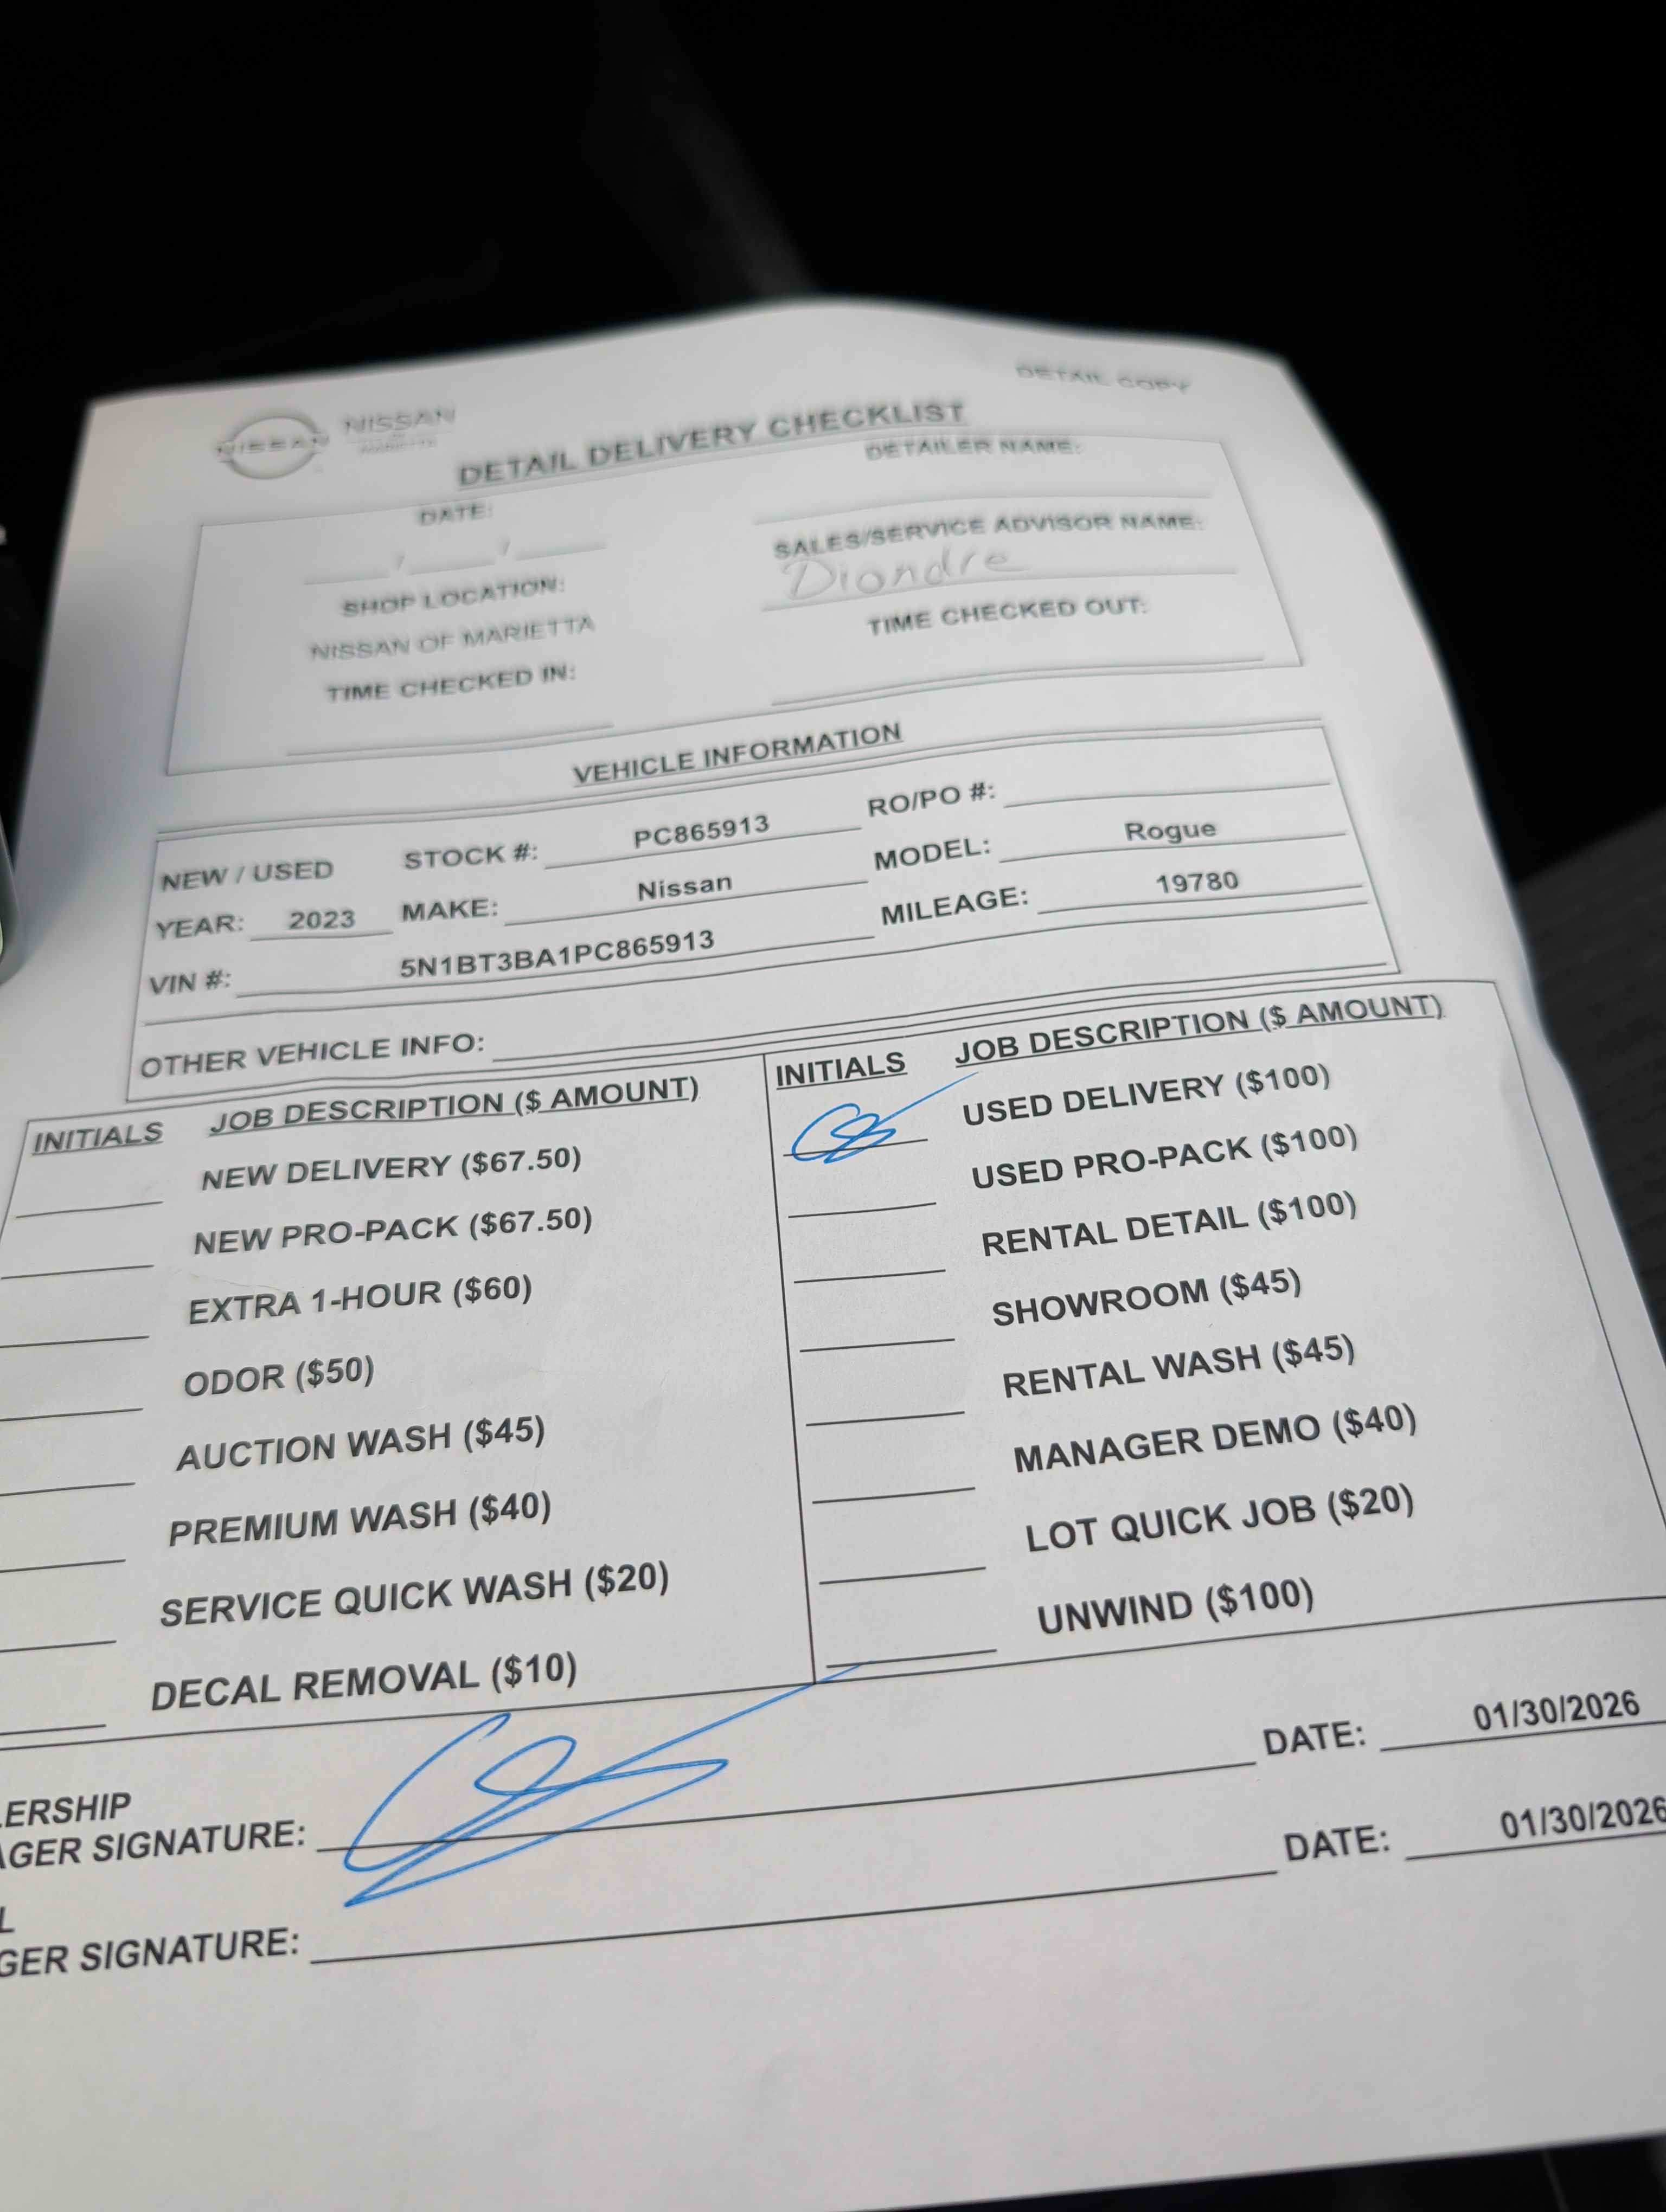 DETAIL COPY
NISSAN NISSAN
OF
MARIETTA
DETAIL DELIVERY CHECKLIST
DATE: DETAILER NAME:
/ /
SHOP LOCATION: SALES/SERVICE ADVISOR NAME:
NISSAN OF MARIETTA Diondre
TIME CHECKED IN: TIME CHECKED OUT:
VEHICLE INFORMATION
NEW / USED STOCK #: PC865913 RO/PO #:
YEAR: 2023 MAKE: Nissan MODEL: Rogue
VIN #: 5N1BT3BA1PC865913 MILEAGE: 19780
OTHER VEHICLE INFO:
INITIALS JOB DESCRIPTION ($ AMOUNT) INITIALS JOB DESCRIPTION ($ AMOUNT)
NEW DELIVERY ($67.50) USED DELIVERY ($100)
NEW PRO-PACK ($67.50) USED PRO-PACK ($100)
EXTRA 1-HOUR ($60) RENTAL DETAIL ($100)
ODOR ($50) SHOWROOM ($45)
AUCTION WASH ($45) RENTAL WASH ($45)
PREMIUM WASH ($40) MANAGER DEMO ($40)
SERVICE QUICK WASH ($20) LOT QUICK JOB ($20)
DECAL REMOVAL ($10) UNWIND ($100)
LERSHIP
AGER SIGNATURE: DATE: 01/30/2026
L
GER SIGNATURE: DATE: 01/30/2026